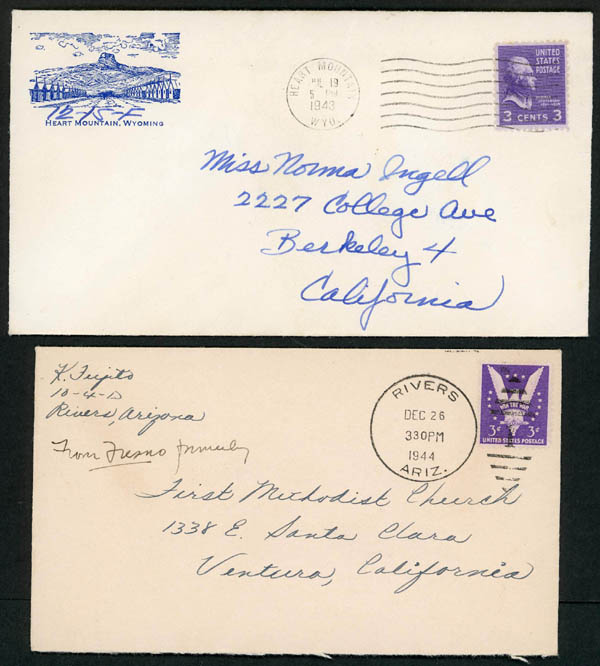 12-15-F
HEART MOUNTAIN, WYOMING
HEART MOUNTAIN
19
5 PM
1943
WYO.
UNITED
STATES
POSTAGE
3 CENTS 3
Miss Norma Ingell
2227 College Ave
Berkeley 4
California
K. Fujito
10-4-D
Rivers, Arizona
From Fresno formerly
RIVERS
DEC 26
330PM
1944
ARIZ.
3¢ 3¢
UNITED STATES POSTAGE
First Methodist Church
1338 E. Santa Clara
Ventura, California